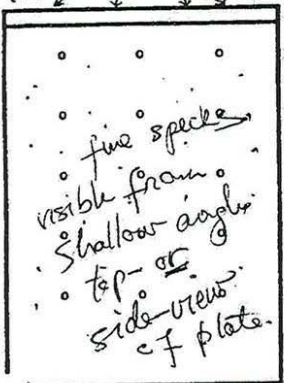 fine specks
visible from
shallow angle
top- or
side-view
of plate.